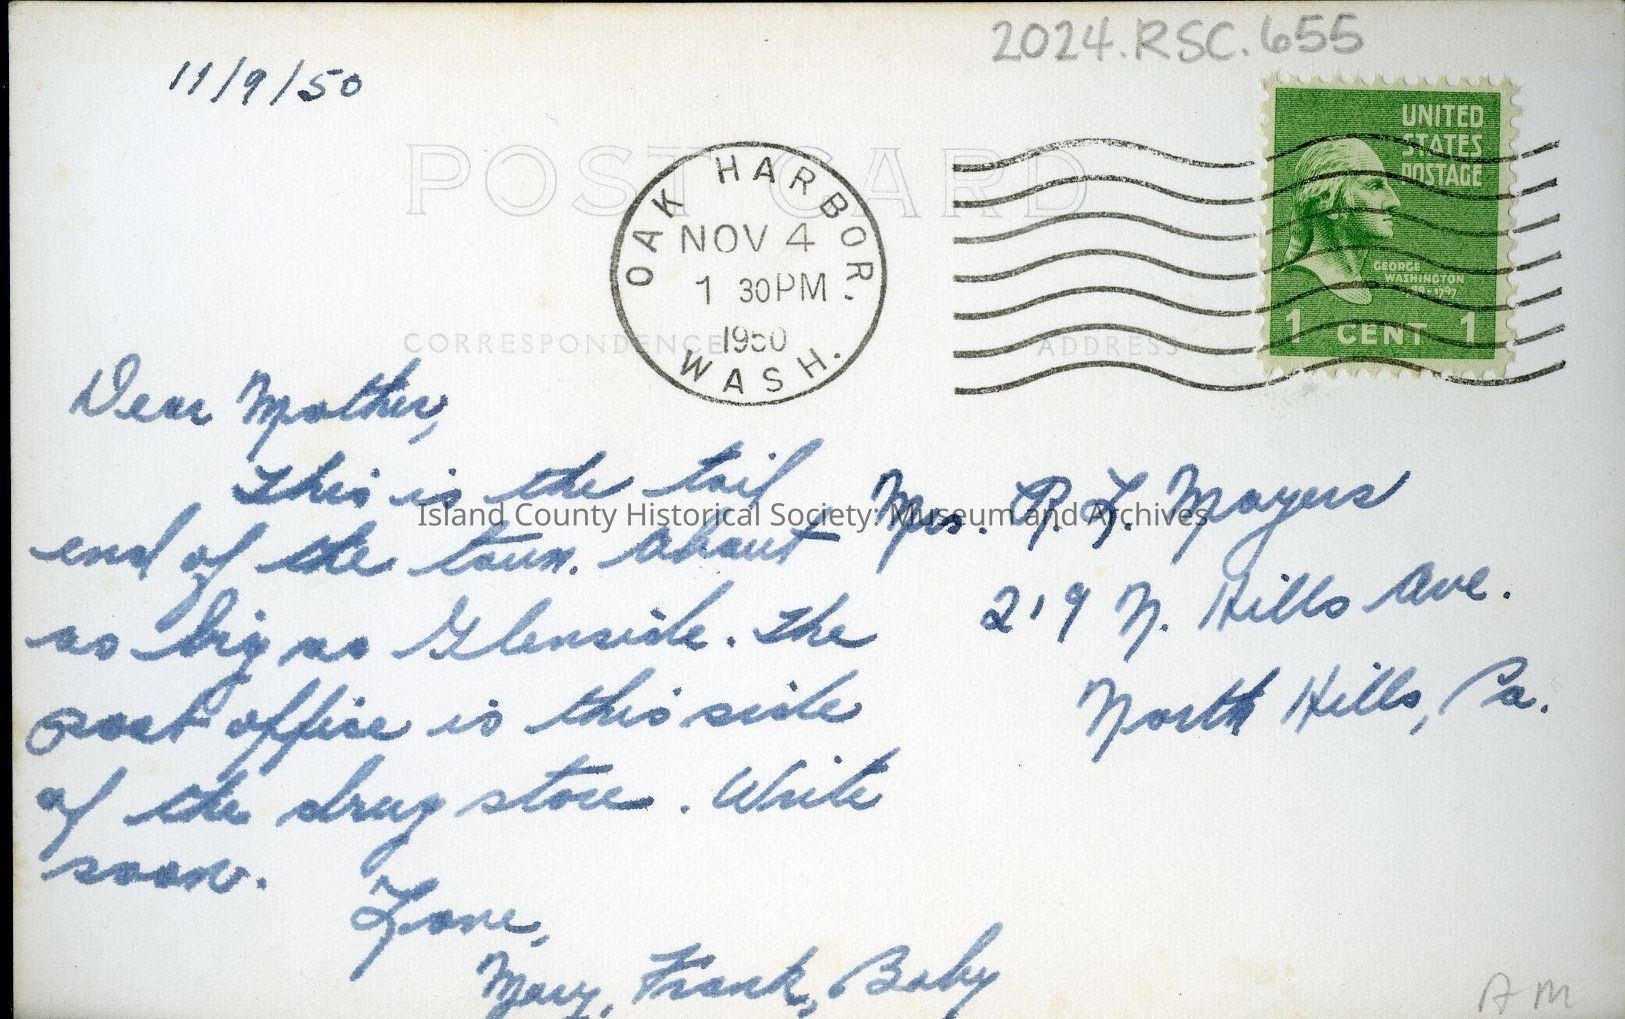 2024.RSC.655
11/9/50
POST CARD
OAK HARBOR.
NOV 4
1 30PM
1950
WASH.
UNITED
STATES
POSTAGE
GEORGE
WASHINGTON
1 CENT 1
CORRESPONDENCE
ADDRESS
Dear Mother,
This is the tail
end of the town. About
as big as Glenside. The
post office is this side
of the drug store. Write
soon.
Love,
Mary, Frank, Baby
Mrs. R. L. Mayers
219 N. Hills Ave.
North Hills, Pa.
Island County Historical Society: Museum and Archives
AM